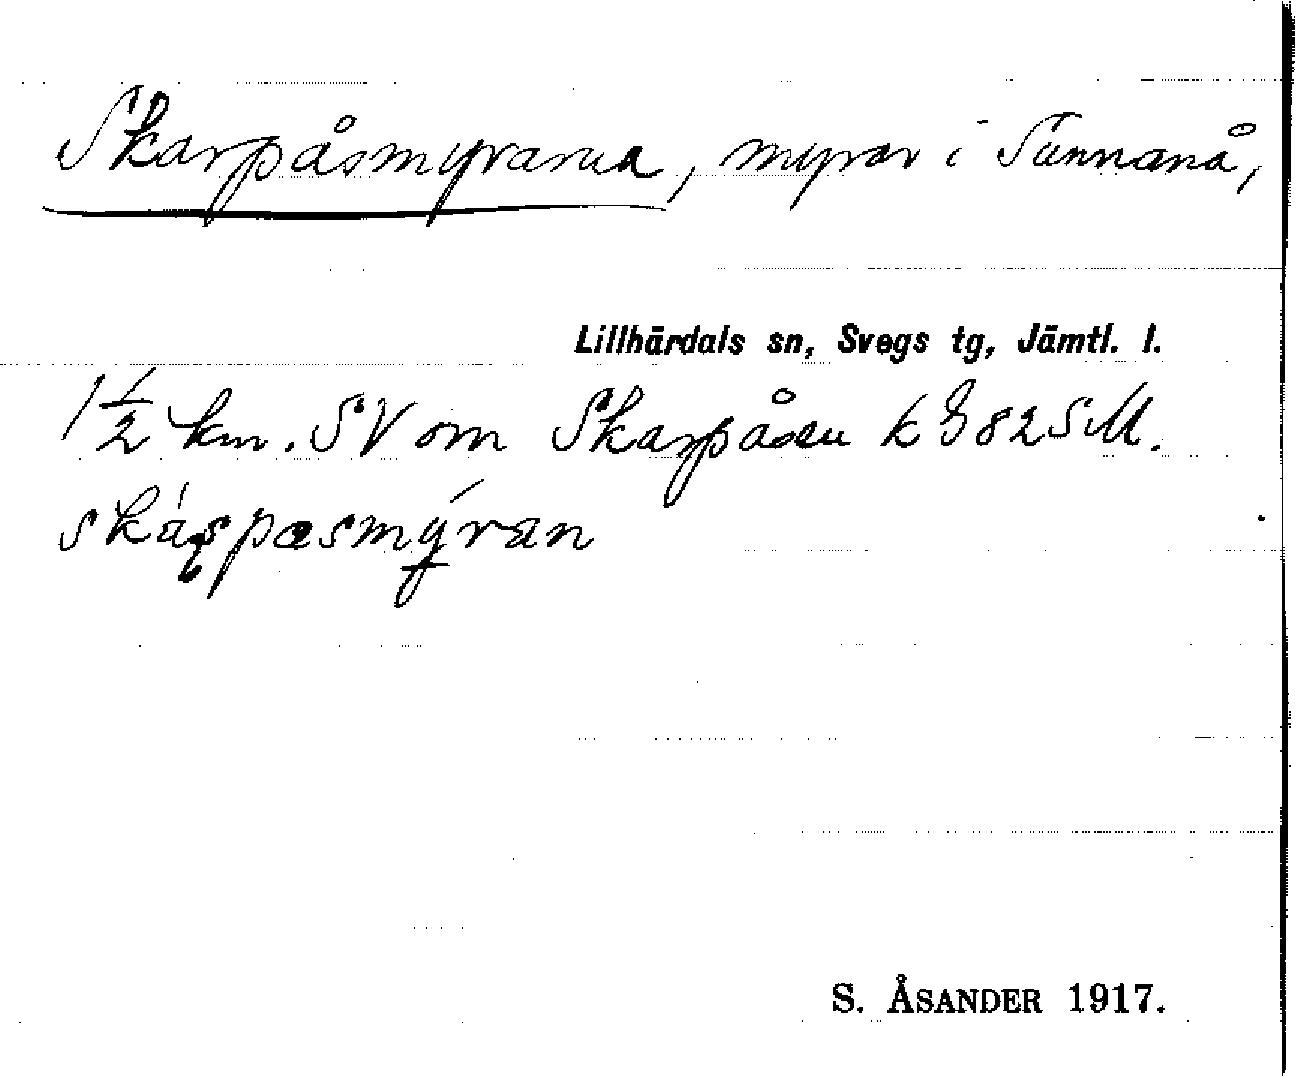 Skarpåsmyrarna, myrar i Sunnanå,
Lillhärdals sn, Svegs tg, Jämtl. l.
1 1/2 km. SV om Skarpåsen k 82 SM.
S. ÅSANDER 1917.